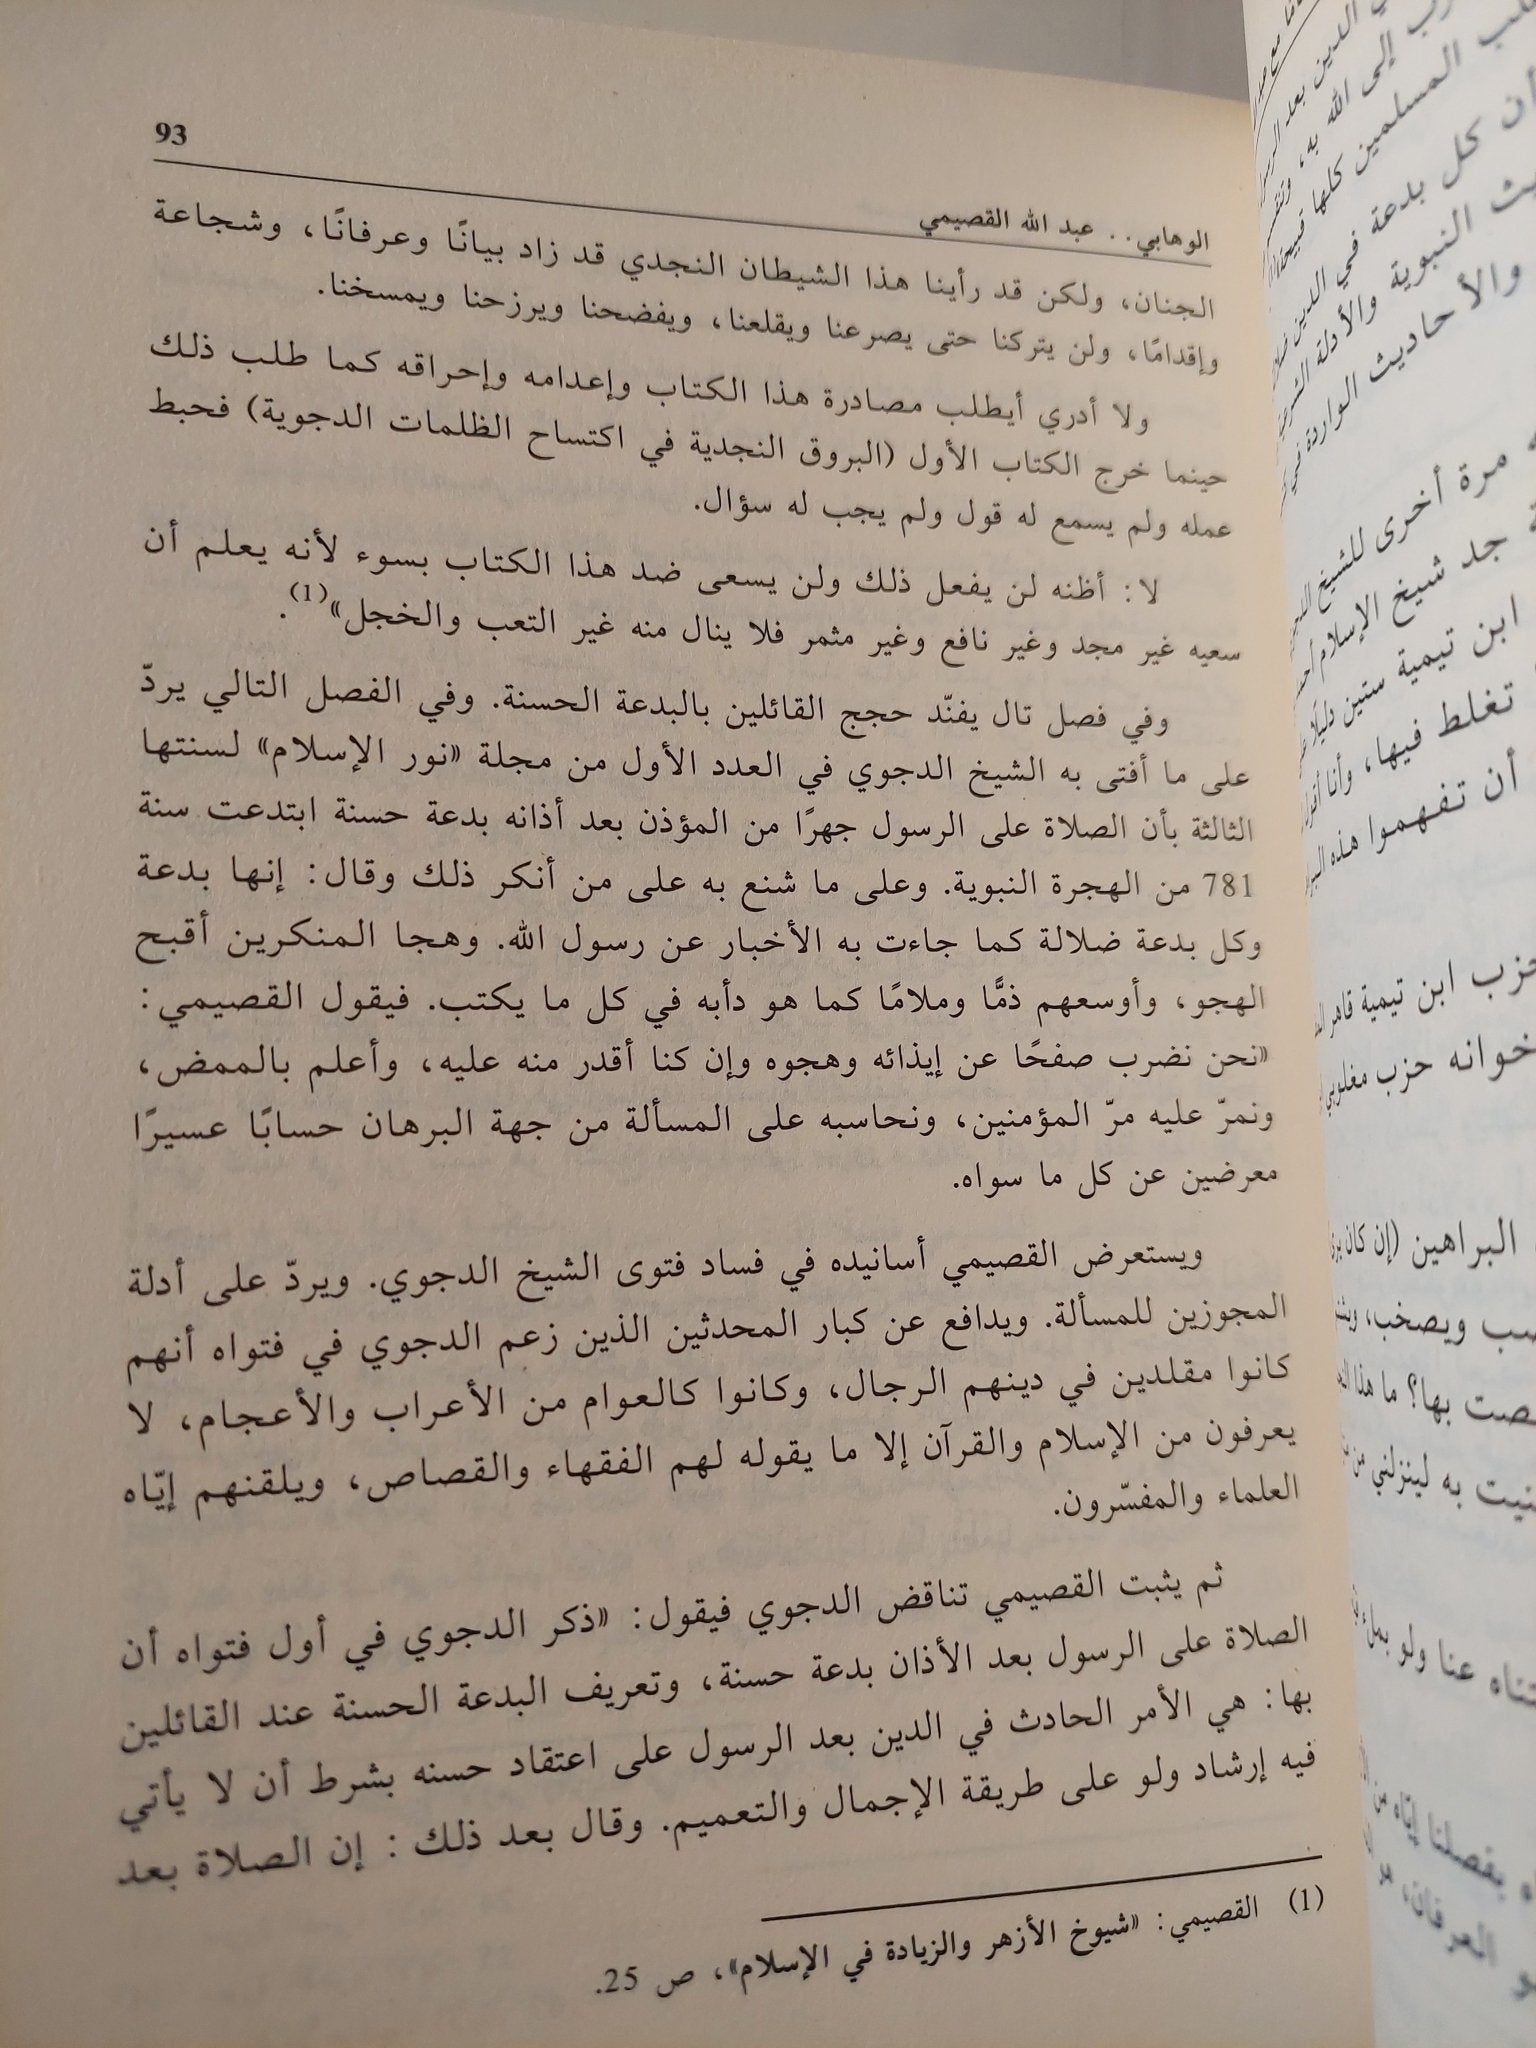 93
الوهابي.. عبد الله القصيمي
الجنان، ولكن قد رأينا هذا الشيطان النجدي قد زاد بيانًا وعرفانًا، وشجاعة
وإقدامًا، ولن يتركنا حتى يصرعنا ويقلعنا، ويفضحنا ويرزحنا ويمسخنا.
ولا أدري أيطلب مصادرة هذا الكتاب وإعدامه وإحراقه كما طلب ذلك
حينما خرج الكتاب الأول (البروق النجدية في اكتساح الظلمات الدجوية) فحبط
عمله ولم يسمع له قول ولم يجب له سؤال.
لا: أظنه لن يفعل ذلك ولن يسعى ضد هذا الكتاب بسوء لأنه يعلم أن
سعيه غير مجد وغير نافع وغير مثمر فلا ينال منه غير التعب والخجل»(1).
وفي فصل تال يفنّد حجج القائلين بالبدعة الحسنة. وفي الفصل التالي يردّ
على ما أفتى به الشيخ الدجوي في العدد الأول من مجلة «نور الإسلام» لسنتها
الثالثة بأن الصلاة على الرسول جهرًا من المؤذن بعد أذانه بدعة حسنة ابتدعت سنة
781 من الهجرة النبوية. وعلى ما شنع به على من أنكر ذلك وقال: إنها بدعة
وكل بدعة ضلالة كما جاءت به الأخبار عن رسول الله. وهجا المنكرين أقبح
الهجو، وأوسعهم ذمًّا وملامًا كما هو دأبه في كل ما يكتب. فيقول القصيمي:
«نحن نضرب صفحًا عن إيذائه وهجوه وإن كنا أقدر منه عليه، وأعلم بالممض،
ونمرّ عليه مرّ المؤمنين، ونحاسبه على المسألة من جهة البرهان حسابًا عسيرًا
معرضين عن كل ما سواه.
ويستعرض القصيمي أسانيده في فساد فتوى الشيخ الدجوي. ويردّ على أدلة
المجوزين للمسألة. ويدافع عن كبار المحدثين الذين زعم الدجوي في فتواه أنهم
كانوا مقلدين في دينهم الرجال، وكانوا كالعوام من الأعراب والأعجام، لا
يعرفون من الإسلام والقرآن إلا ما يقوله لهم الفقهاء والقصاص، ويلقنهم إيّاه
العلماء والمفسّرون.
ثم يثبت القصيمي تناقض الدجوي فيقول: «ذكر الدجوي في أول فتواه أن
الصلاة على الرسول بعد الأذان بدعة حسنة، وتعريف البدعة الحسنة عند القائلين
بها: هي الأمر الحادث في الدين بعد الرسول على اعتقاد حسنه بشرط أن لا يأتي
فيه إرشاد ولو على طريقة الإجمال والتعميم. وقال بعد ذلك: إن الصلاة بعد
(1) القصيمي: «شيوخ الأزهر والزيادة في الإسلام»، ص 25.
الدين بعد
إلى الله به،
المسلمين كلها
أن كل بدعة في الدين
النبوية والأدلة
والأحاديث الواردة
مرة أخرى للشيخ
جد شيخ الإسلام
ابن تيمية ستين
تغلط فيها، وأنا
أن تفهموا هذه
حزب ابن تيمية قاهر
حزب
البراهين (إن كان
ويصخب،
بها؟ ما هذا
به لينزلني من
عنا ولو